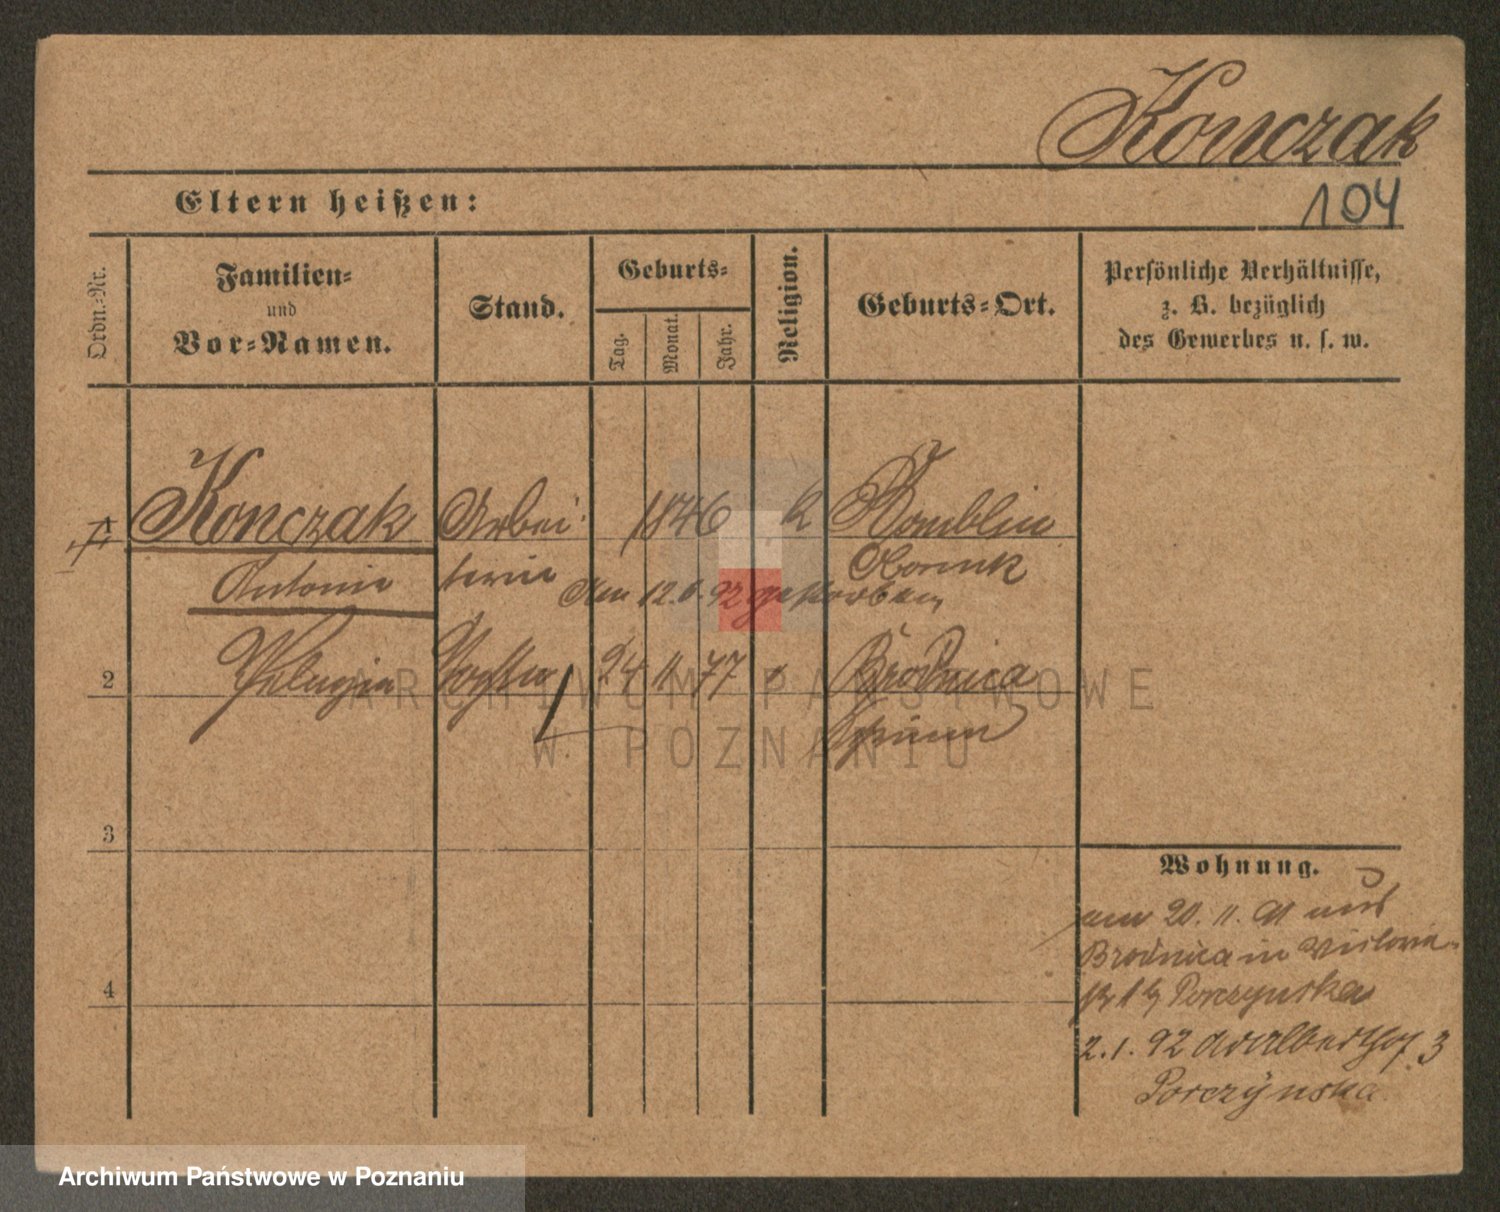 Konczak
104
Eltern heißen:
Ordn.-Nr.
Familien-
und
Vor-Namen.
Stand.
Geburts-
Tag.
Monat.
Jahr.
Religion.
Geburts-Ort.
Persönliche Verhältnisse,
z. B. bezüglich
des Gewerbes u. s. w.
1 Konczak Arbei- 1846 k
Antonie terin Obornik
Am 12.6.92 gestorben
2 Pelagia Tochter 24 11 77 Brodnica
Schrimm
3
4
Wohnung.
am 20.11.91 aus
Brodnica in Victoria-
Porczynska
2.1.92 Adalbertstr 3
Porczynska
ARCHIWUM PAŃSTWOWE
W POZNANIU
Archiwum Państwowe w Poznaniu